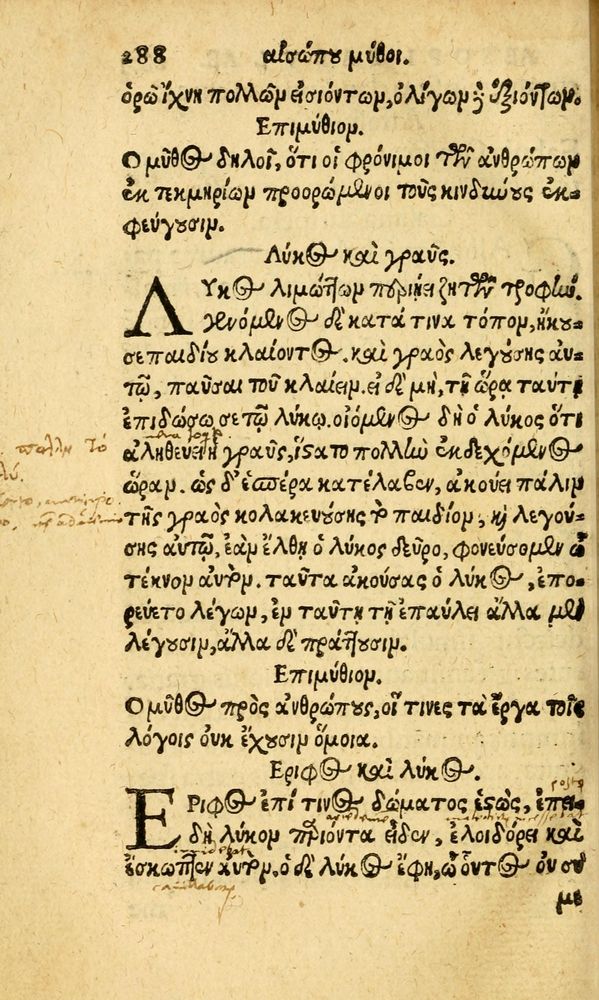 288 αἰσώπου μῦθοι.
ὁρῶ ἴχνη πολλῶν εἰσιόντων, ὀλίγων δὲ ἐξιόντων.
Επιμύθιον.
Ο μῦθος δηλοῖ, ὅτι οἱ φρόνιμοι τῶν ἀνθρώπων
ἐκ τεκμηρίων προορώμενοι τοὺς κινδύνους ἐκ-
φεύγουσιν.
Λύκος καὶ γραῦς.
ΛΥΚος λιμώττων περιῄει ζητῶν τροφήν.
γενόμενος δὲ κατά τινα τόπον, ἤκου-
σε παιδίου κλαίοντος. καὶ γραὸς λεγούσης αὐ-
τῷ, παῦσαι τοῦ κλαίειν. εἰ δὲ μὴ, τῇ ὥρᾳ ταύτῃ
ἐπιδώσω σε τῷ λύκῳ. οἰόμενος δὴ ὁ λύκος ὅτι
ἀληθεύει ἡ γραῦς, ἵστατο πολλὴν ἐκδεχόμενος
ὥραν. ὡς δ' ἑσπέρα κατέλαβεν, ἀκούει πάλιν
τῆς γραὸς κολακευούσης τὸ παιδίον, καὶ λεγού-
σης αὐτῷ, ἐὰν ἔλθῃ ὁ λύκος δεῦρο, φονεύσομεν ὦ
τέκνον αὐτόν. ταῦτα ἀκούσας ὁ λύκος, ἐπο-
ρεύετο λέγων, ἐν ταύτῃ τῇ ἐπαύλει ἄλλα μὲν
λέγουσιν, ἄλλα δὲ πράττουσιν.
Επιμύθιον.
Ο μῦθος πρὸς ἀνθρώπους, οἵ τινες τὰ ἔργα τοῖς
λόγοις οὐκ ἔχουσιν ὅμοια.
Εριφος καὶ λύκος.
ΕΡΙΦος ἐπί τινος δώματος ἑστὼς, ἐπει-
δὴ λύκον παριόντα εἶδεν, ἐλοιδόρει καὶ
ἔσκωπτεν αὐτόν, ὁ δὲ λύκος ἔφη, ὦ οὗτος οὐ σύ
με